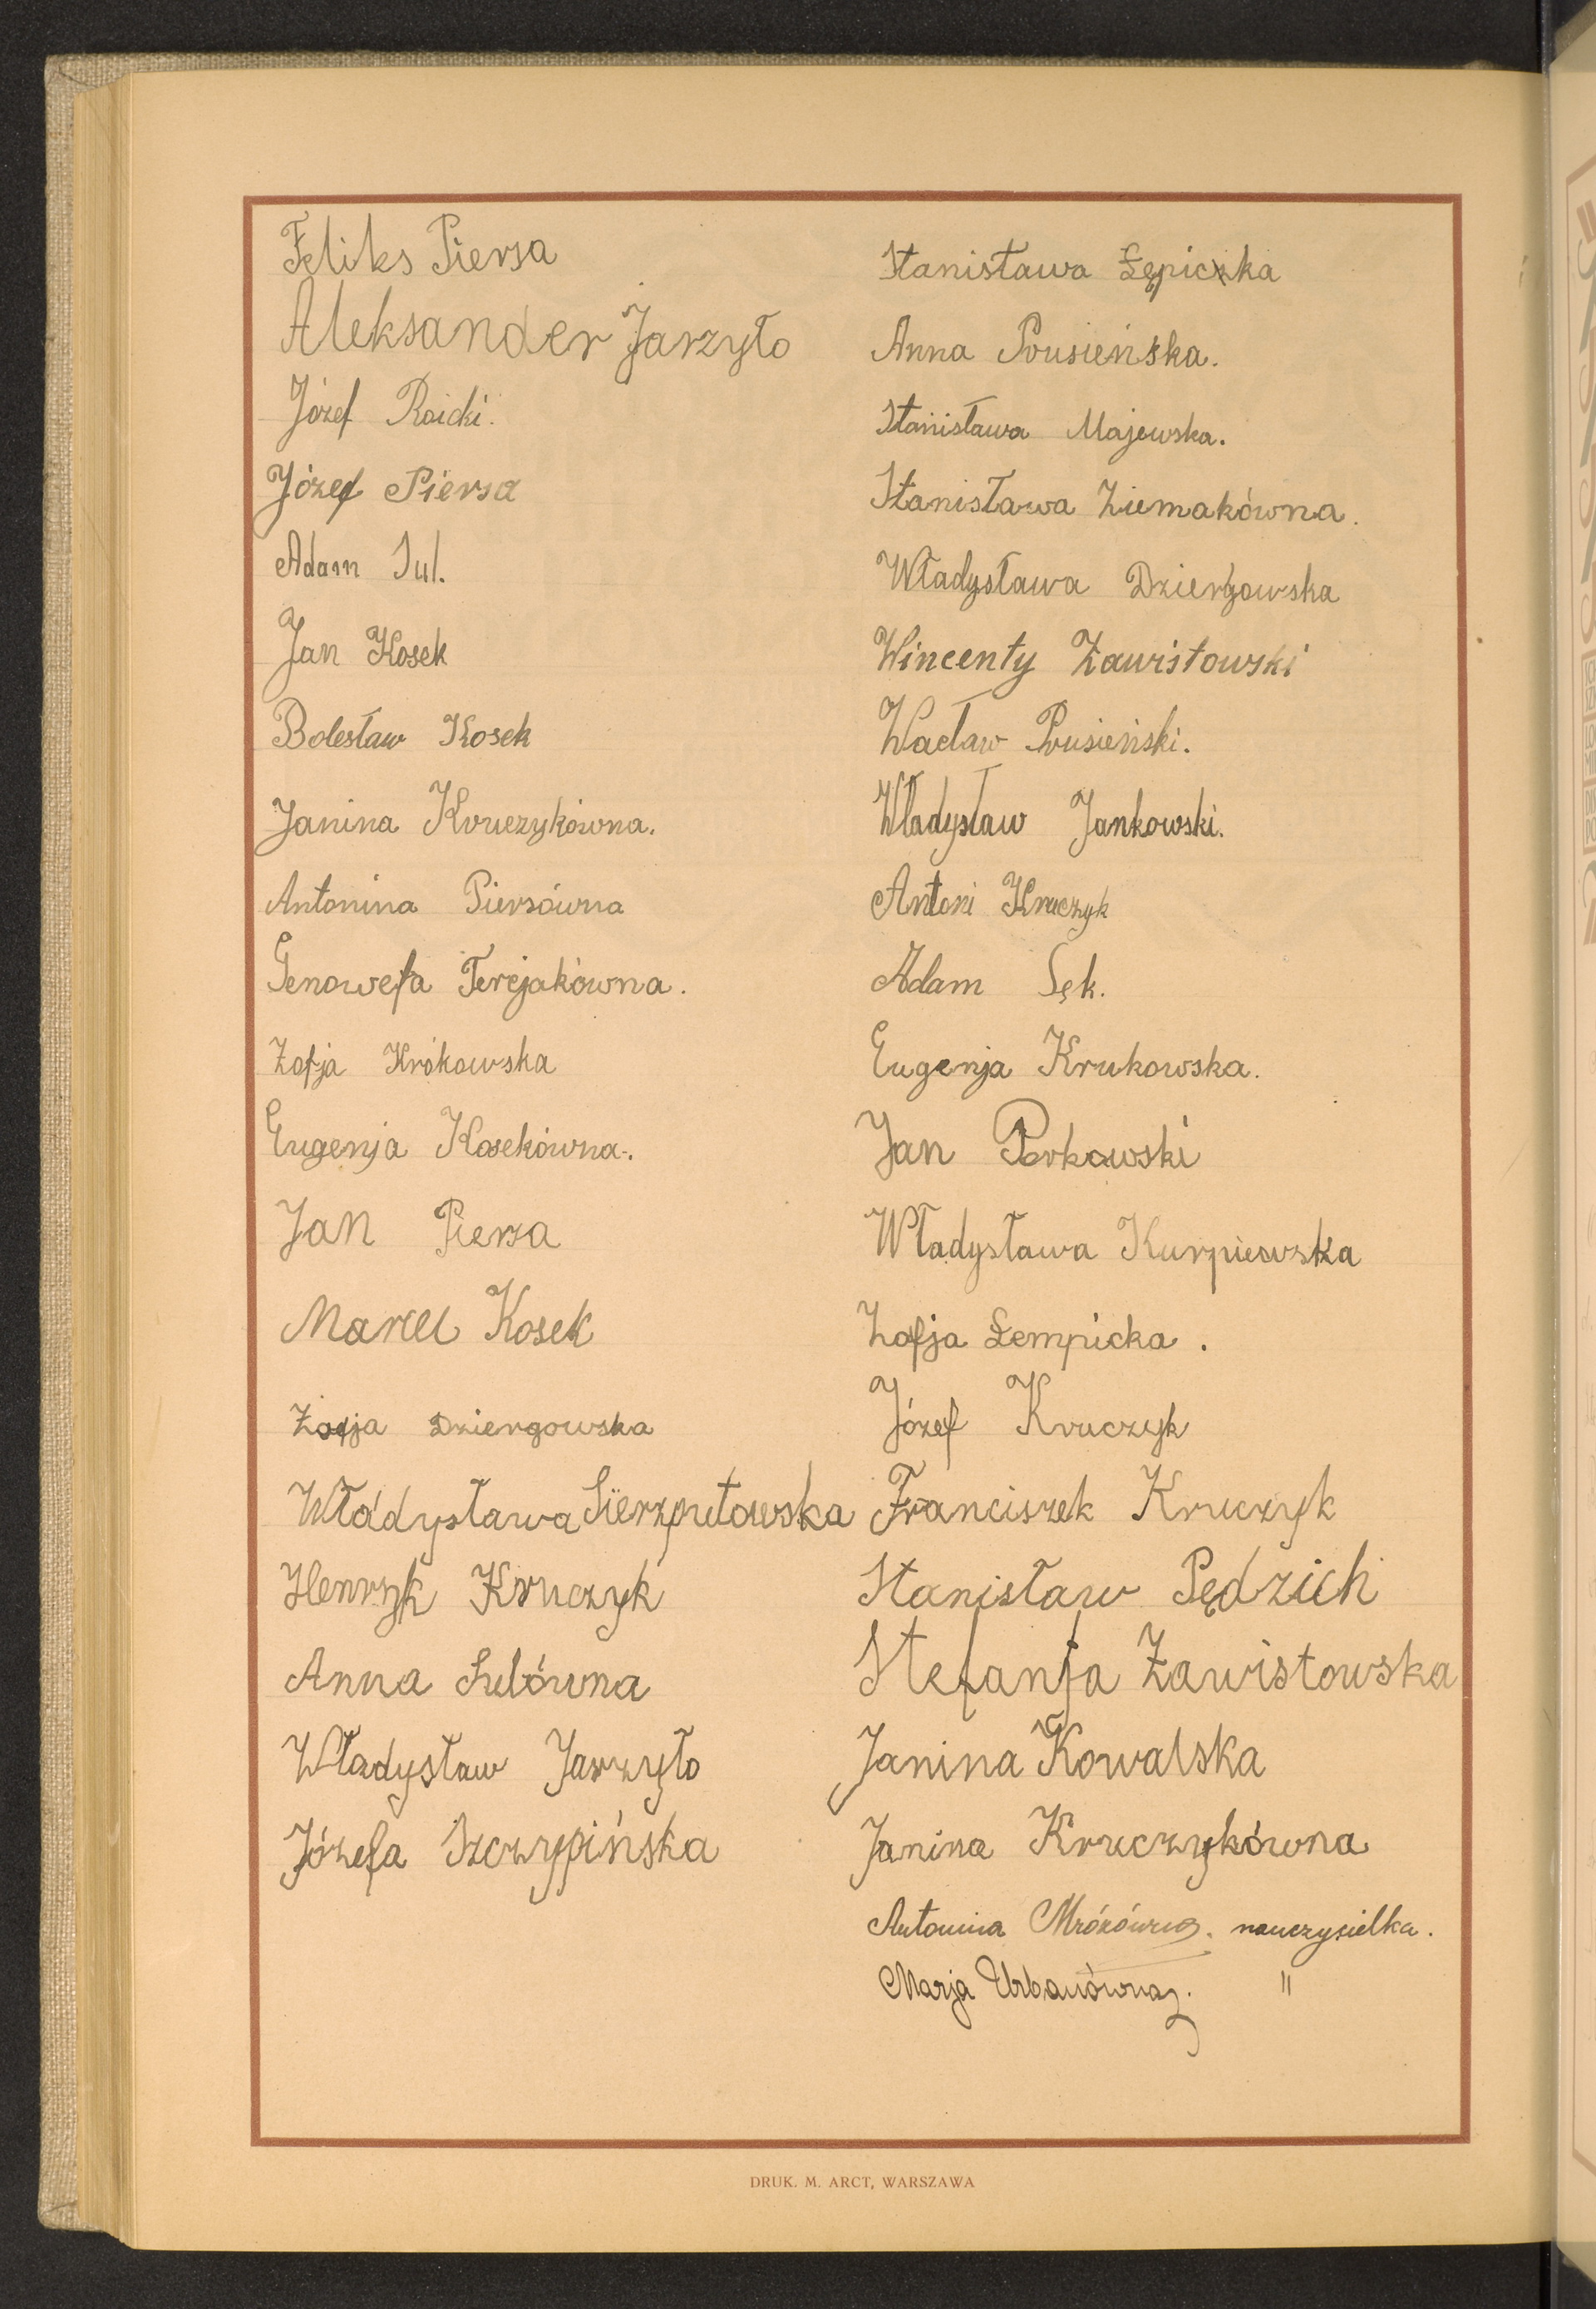 Feliks Piersa
Aleksander Jarzyło
Józef Roicki.
Józef Piersa
Adam Sul.
Jan Kosek
Bolesław Kosek
Janina Kruczykówna.
Antonina Piersówna
Genowefa Terejakówna.
Zofja Krókowska
Eugenja Kosekówna.
Jan Piersa
Marcel Kosek
Zofja Dziergowska
Władysława Sierzputowska
Henryk Kruczyk
Anna Sulówna
Władysław Jarzyło
Józefa Szczypińska
Stanisława Łępiczka
Anna Prusieńska.
Stanisława Majewska.
Stanisława Ziemakówna.
Władysława Dziergowska
Wincenty Zawistowski
Wacław Prusieński.
Władysław Jankowski.
Antoni Kruczyk
Adam Sęk.
Eugenja Krukowska.
Jan Perkowski
Władysława Kurpiewska
Zofja Łempicka.
Józef Kruczyk
Franciszek Kruczyk
Stanisław Pędzich
Stefanja Zawistowska
Janina Kowalska
Janina Kruczykówna
Antonina Mrózówna. nauczycielka.
Marja Urbanówna. "
DRUK. M. ARCT, WARSZAWA